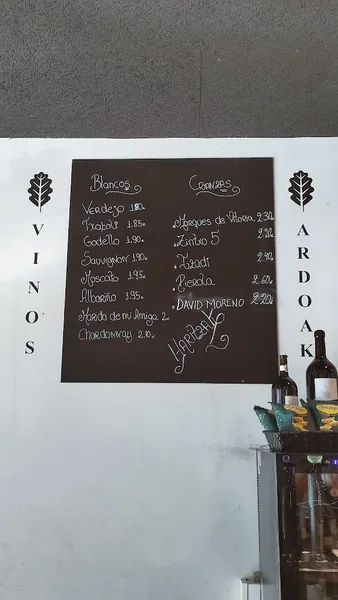 VINOS
Blancos
Verdejo 1.80
Txapoli 1.85
Godello 1.90
Sauvignon 1.90
Moscato 1.95
Albariño 1.95
Marido de mi Amiga 2
Chardonnay 2.10
Crianzas
Marques de Vitoria 2.30
Zintzo 5 2.20
Izadi 2.40
Pierola 2.60
DAVID MORENO 2.20
HARITZA
ARDOAK